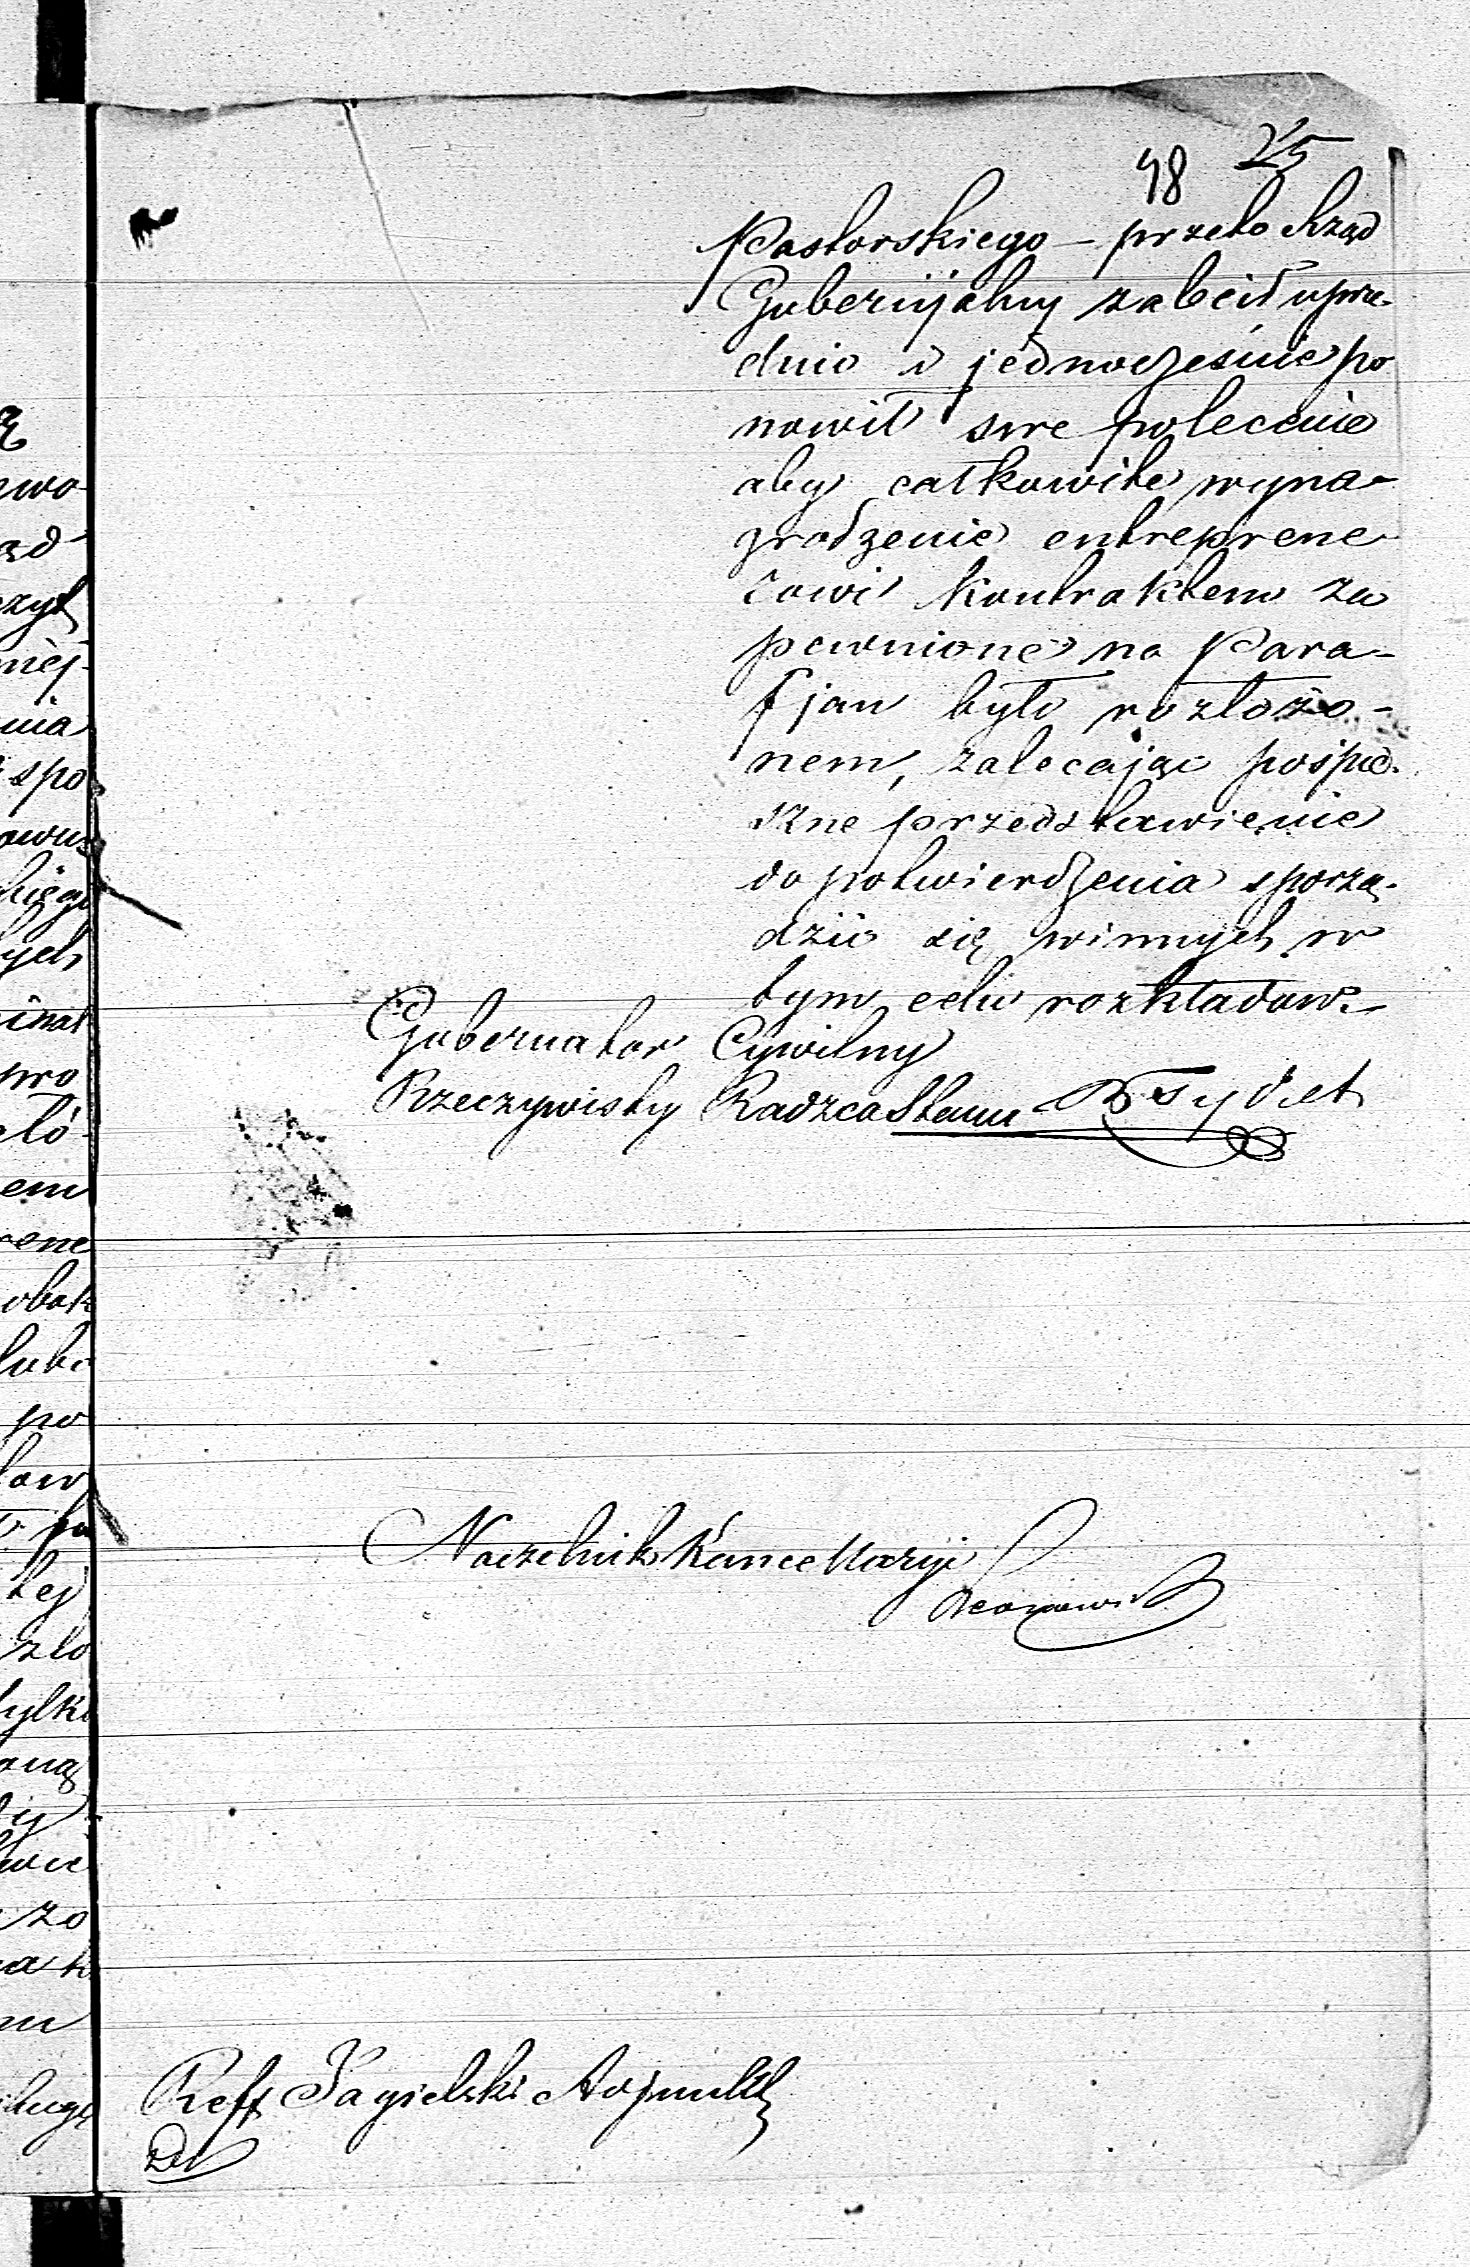 48 25
Pastorskiego — przeto Rząd
Gubernijalny zalecił uprze-
dnio i jednocześnie po
nowił swe polecenie
aby całkowite wyna-
grodzenie entreprene-
rowi kontraktem za
pewnione na Para-
fjan było rozłożo-
nem, zalecając pośpie-
szne przedstawienie
do potwierdzenia sporzą-
dzić się winnych w
tym celu rozkładów.
Gubernator Cywilny
Rzeczywisty Radzca Stanu
Naczelnik Kancellaryi
Reff Jagielski